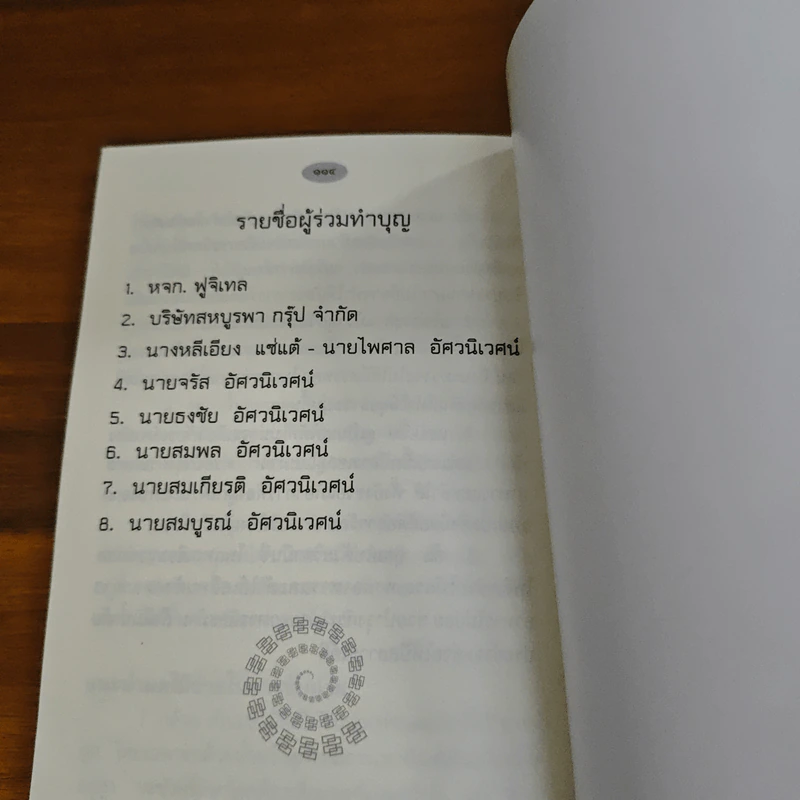 ๑๑๔
รายชื่อผู้ร่วมทำบุญ
1. หจก. ฟูจิเทล
2. บริษัทสหบูรพา กรุ๊ป จำกัด
3. นางหลีเอียง แซ่แต้ - นายไพศาล อัศวนิเวศน์
4. นายจรัส อัศวนิเวศน์
5. นายธงชัย อัศวนิเวศน์
6. นายสมพล อัศวนิเวศน์
7. นายสมเกียรติ อัศวนิเวศน์
8. นายสมบูรณ์ อัศวนิเวศน์